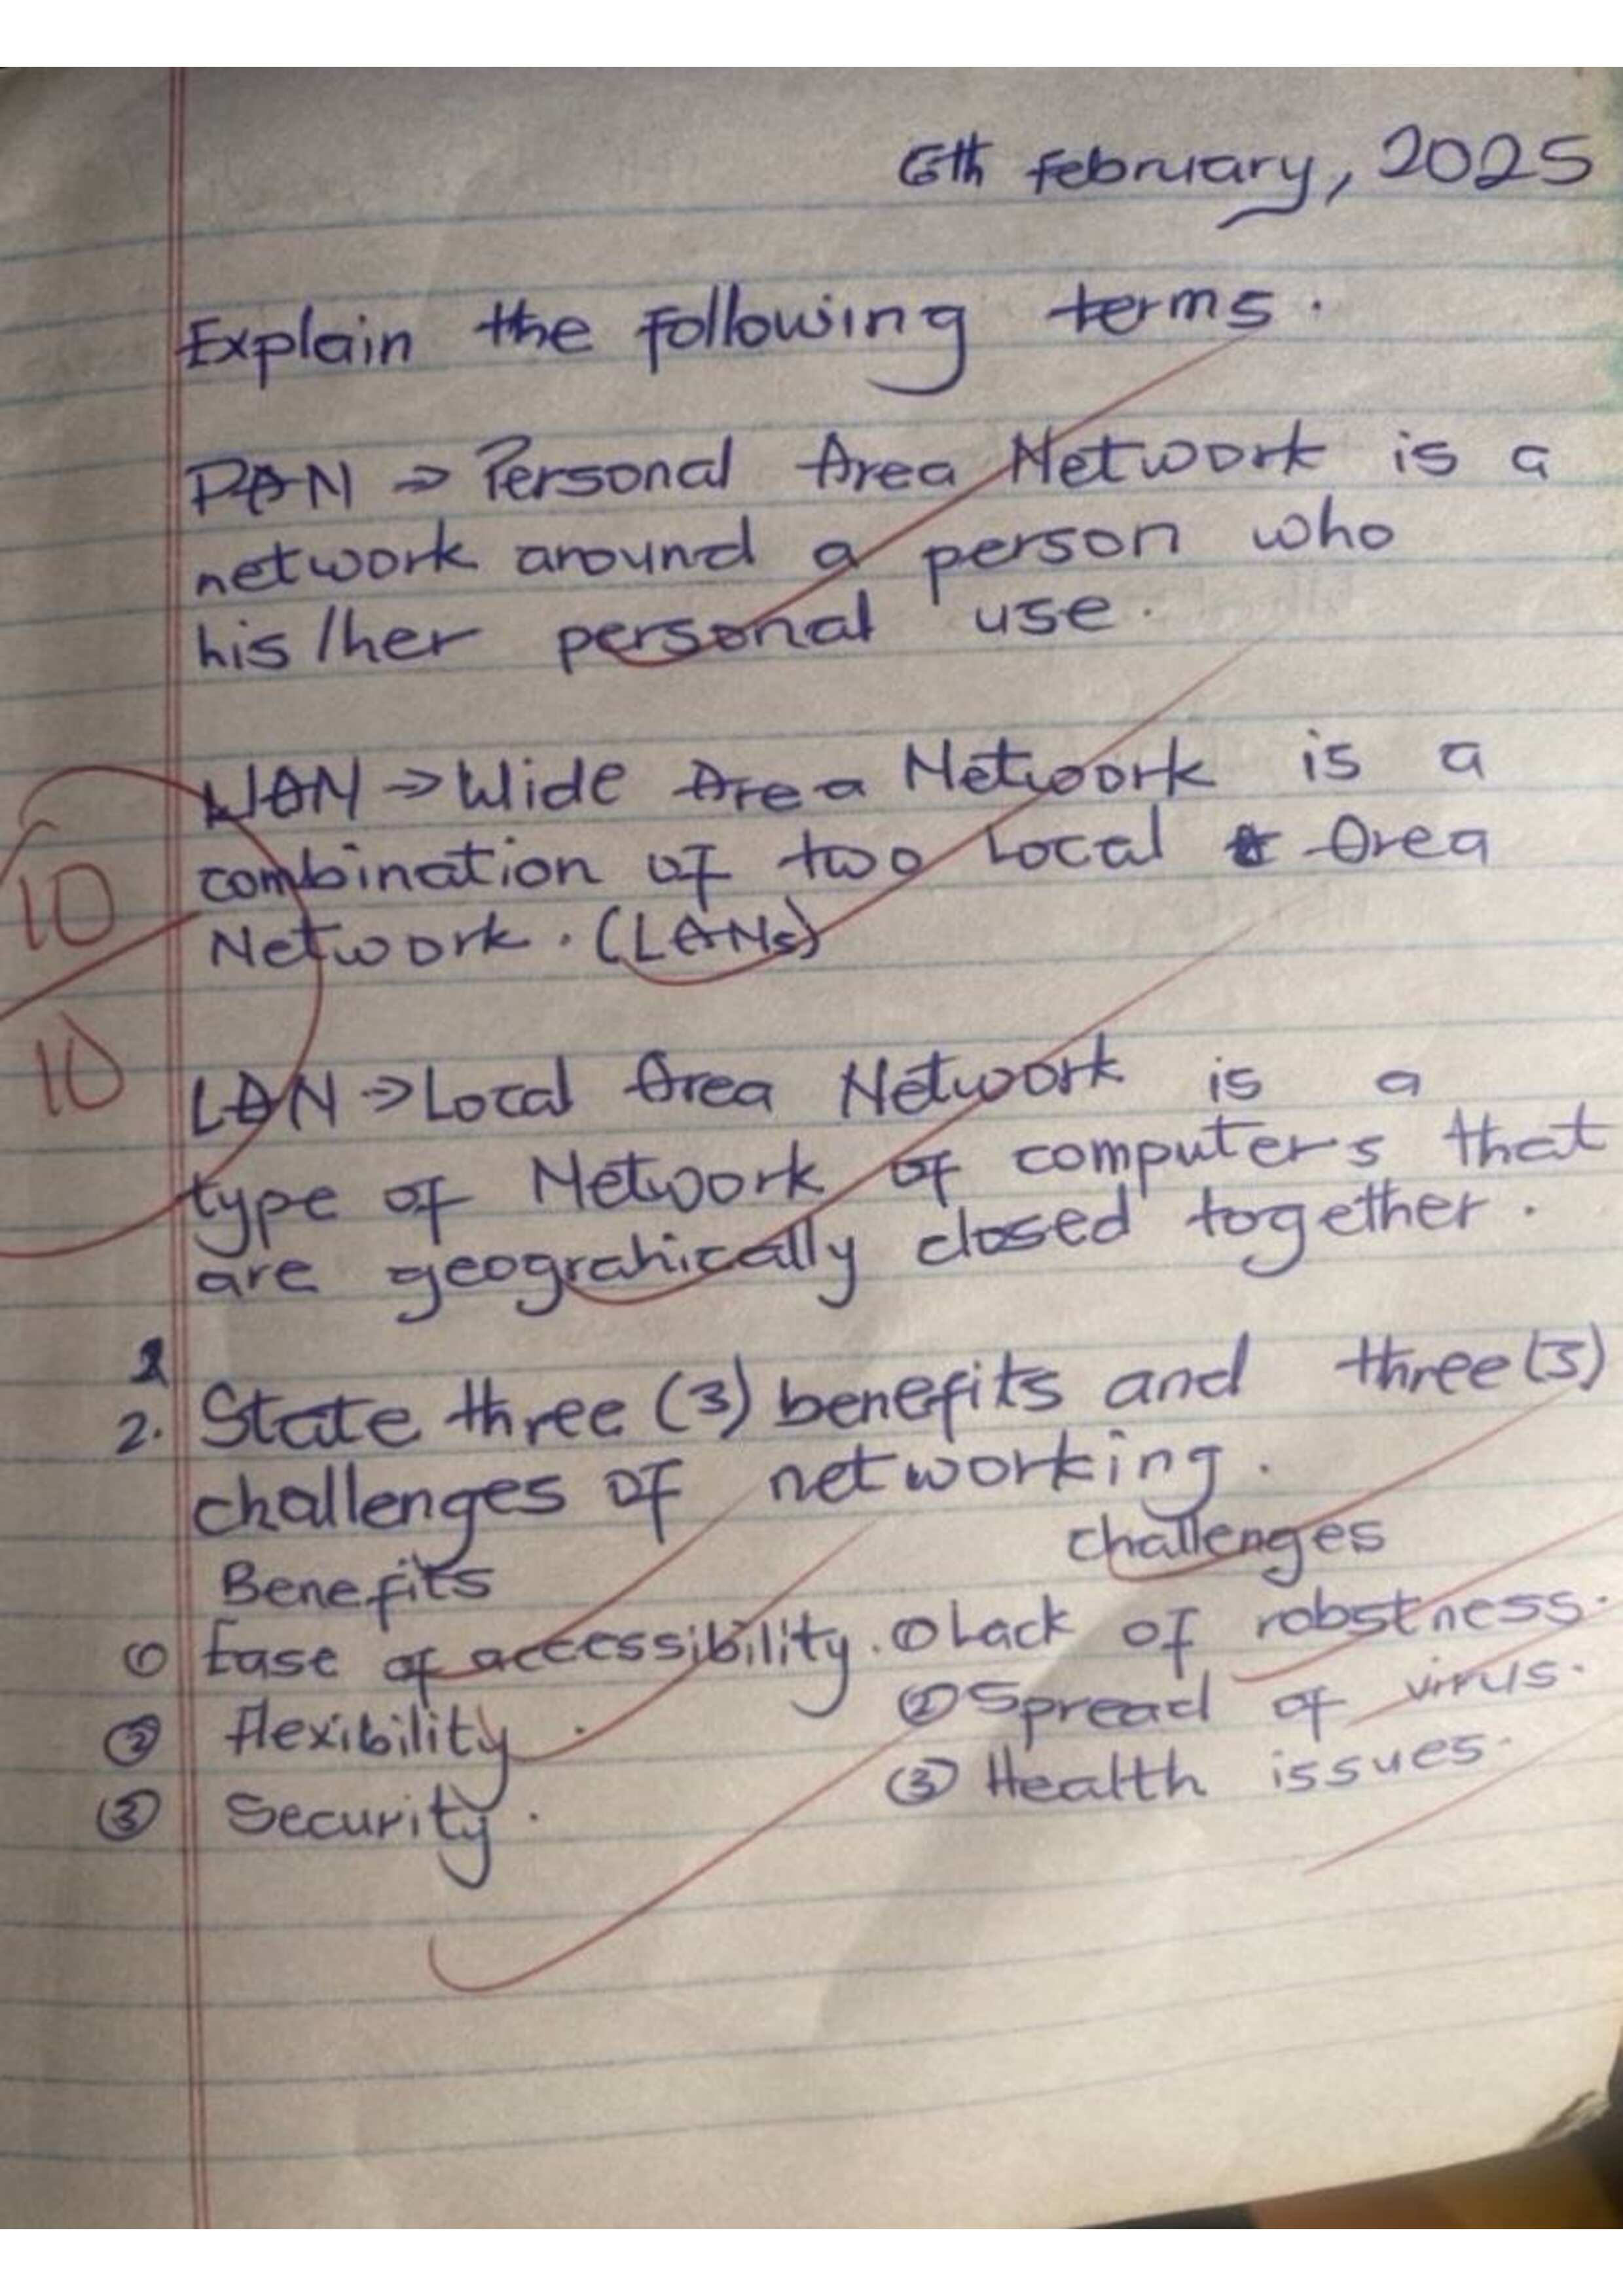 6th February, 2025
Explain the following terms.
PAN ⇒ Personal Area Network is a
network around a person who
his/her personal use.
WAN ⇒ Wide Area Network is a
combination of two Local Area
Network. (LANs)
10
10
LAN ⇒ Local Area Network is a
type of Network of computers that
are geograhically closed together.
2. State three (3) benefits and three (3)
challenges of networking.
Benefits challenges
① Ease of accessibility. ① Lack of robstness.
② flexibility. ② Spread of virus.
③ Security. ③ Health issues.